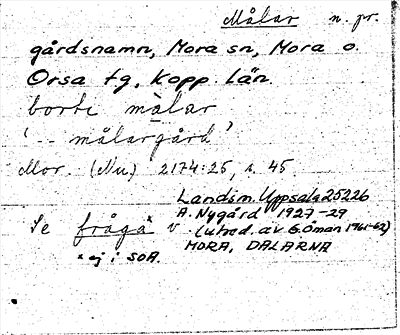 Målar n. pr.
gårdsnamn, Mora sn, Mora o.
Orsa tg, Kopp. län.
borti målar
'-- målargård'
Mor. (Nu) 2174:25, s. 45.
Landsm. Uppsala 25226
A. Nygård 1927-29
Se fråga v. (utred. av G. Öman 1961-62)
MORA, DALARNA
* ej i SOA.